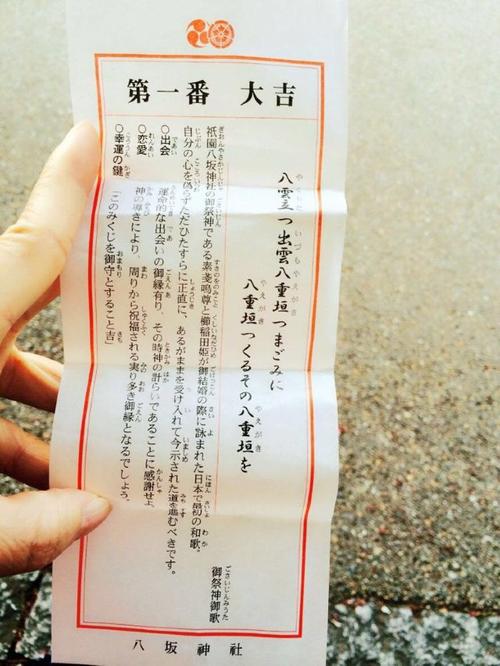 第一番 大吉
八雲立つ出雲八重垣つまごみに
八重垣つくるその八重垣を
御祭神御歌
祇園八坂神社の御祭神である素戔嗚尊と櫛稲田姫が御結婚の際に詠まれた日本で最初の和歌。
自分の心を偽らずただひたすらに正直に、あるがままを受け入れて今示された道を進むべきです。
○出会 運命的な出会いの御縁有り、その時神の計らいであることに感謝せよ。
○恋愛 神の導きにより、周りから祝福される実り多き御縁となるでしょう。
○幸運の鍵 「このみくじを御守とすること吉」
八坂神社